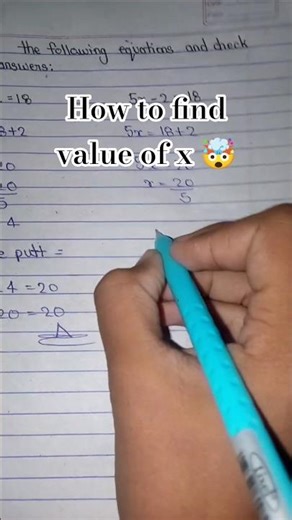 the following equations and check
answers:
= 18
5x - 2 = 18
How to find
value of x 🤯
+2
5x = 18 + 2
20
x = 20
5
5
4
putt =
4 = 20
20 = 20